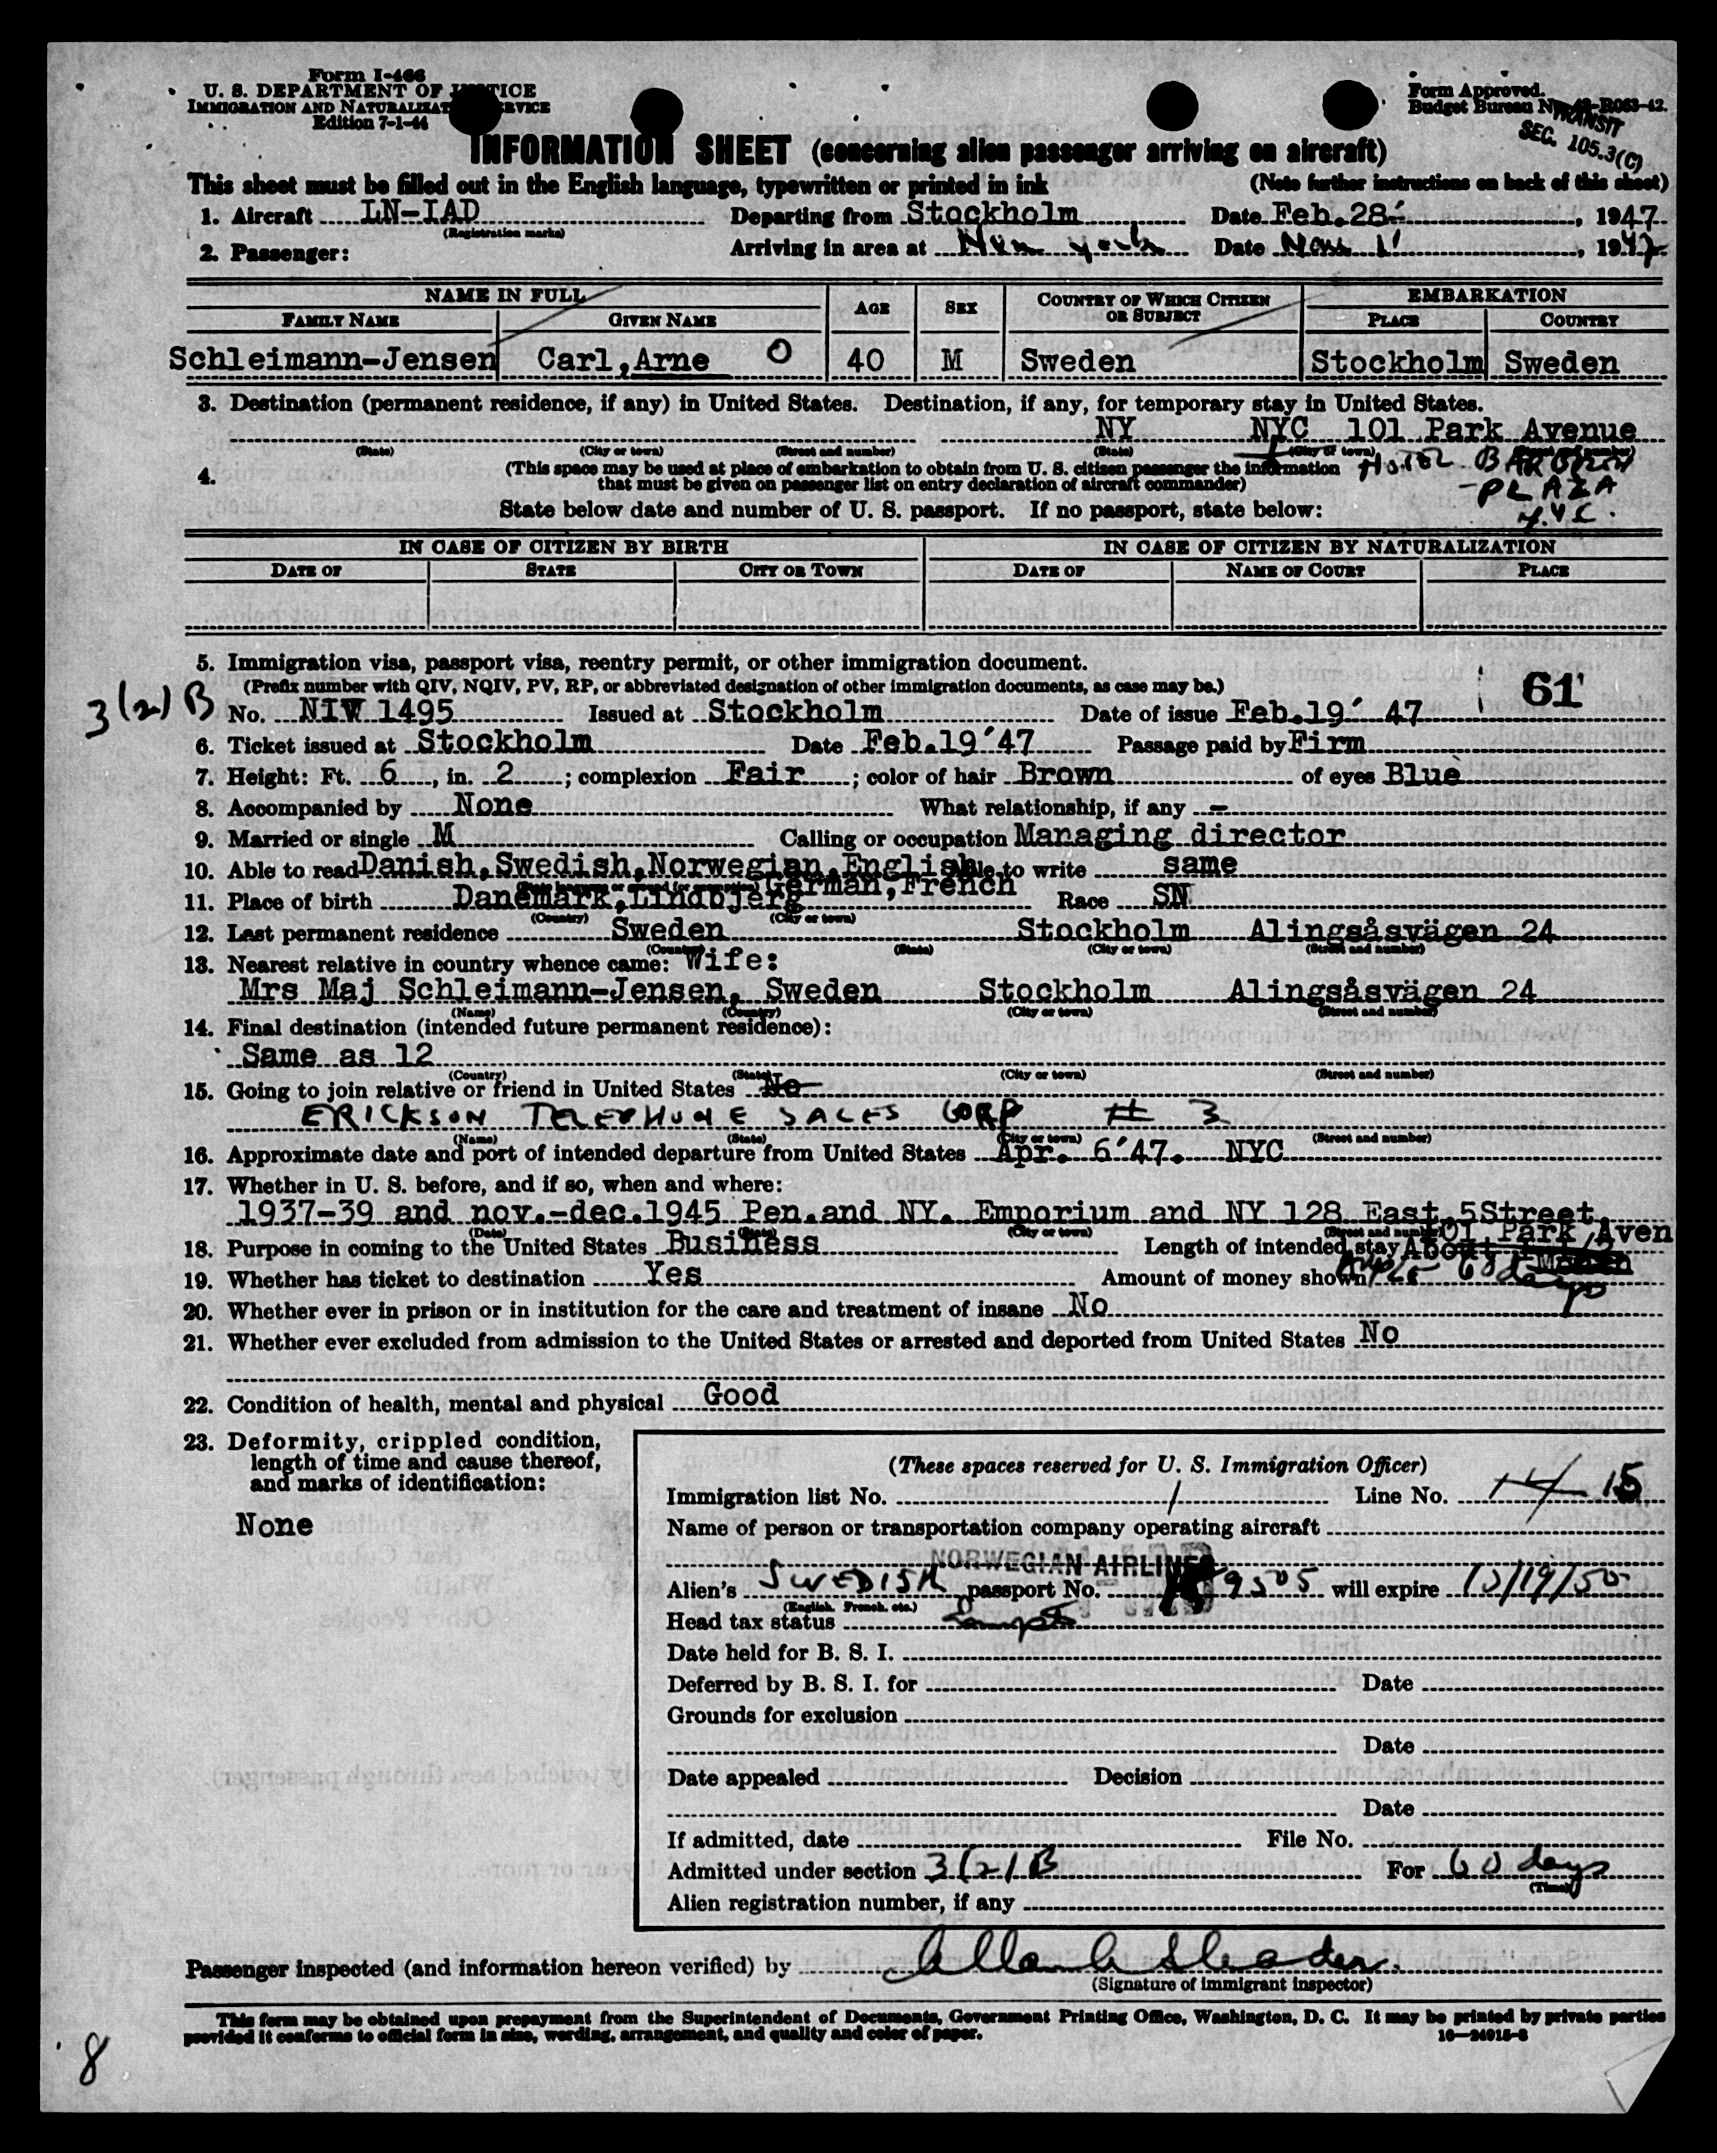 Form I-466
U. S. DEPARTMENT OF JUSTICE
IMMIGRATION AND NATURALIZATION SERVICE
Edition 7-1-44
Form Approved.
Budget Bureau No. 43-R063-42.
TRANSIT
SEC. 105.3(C)
INFORMATION SHEET (concerning alien passenger arriving on aircraft)
This sheet must be filled out in the English language, typewritten or printed in ink (Note further instructions on back of this sheet)
1. Aircraft LN-IAD Departing from Stockholm Date Feb.28 , 1947
(Registration marks)
2. Passenger: Arriving in area at New York Date , 1947
NAME IN FULL AGE SEX COUNTRY OF WHICH CITIZEN OR SUBJECT EMBARKATION
FAMILY NAME GIVEN NAME PLACE COUNTRY
Schleimann-Jensen Carl,Arne O 40 M Sweden Stockholm Sweden
3. Destination (permanent residence, if any) in United States. Destination, if any, for temporary stay in United States.
NY NYC 101 Park Avenue
(State) (City or town) (Street and number) (State) (City or town) (Street and number)
HOTEL BARBIZON
-PLAZA
N.Y.C.
4. (This space may be used at place of embarkation to obtain from U. S. citizen passenger the information
that must be given on passenger list on entry declaration of aircraft commander)
State below date and number of U. S. passport. If no passport, state below:
IN CASE OF CITIZEN BY BIRTH IN CASE OF CITIZEN BY NATURALIZATION
DATE OF STATE CITY OR TOWN DATE OF NAME OF COURT PLACE
5. Immigration visa, passport visa, reentry permit, or other immigration document.
(Prefix number with QIV, NQIV, PV, RP, or abbreviated designation of other immigration documents, as case may be.)
61
3(2)B
No. NIV 1495 Issued at Stockholm Date of issue Feb.19´ 47
6. Ticket issued at Stockholm Date Feb.19´47 Passage paid by Firm
7. Height: Ft. 6, in. 2; complexion Fair; color of hair Brown of eyes Blue
8. Accompanied by None What relationship, if any -
9. Married or single M Calling or occupation Managing director
10. Able to read Danish,Swedish,Norwegian,English Able to write same
German,French
11. Place of birth Danemark,Lindbjerg Race SN
(Country) (City or town)
12. Last permanent residence Sweden Stockholm Alingsåsvägen 24
(Country) (State) (City or town) (Street and number)
13. Nearest relative in country whence came: Wife:
Mrs Maj Schleimann-Jensen, Sweden Stockholm Alingsåsvägen 24
(Name) (Country) (City or town) (Street and number)
14. Final destination (intended future permanent residence):
Same as 12
(Country) (State) (City or town) (Street and number)
15. Going to join relative or friend in United States No
ERICKSON TELEPHONE SALES CORP # 3
(Name) (State) (City or town) (Street and number)
16. Approximate date and port of intended departure from United States Apr. 6´47. NYC
17. Whether in U. S. before, and if so, when and where:
1937-39 and nov.-dec.1945 Pen.and NY. Emporium and NY 128 East 5Street
(Date) (State) (City or town) (Street and number)
101 Park Aven
18. Purpose in coming to the United States Business Length of intended stay About
19. Whether has ticket to destination Yes Amount of money shown 60 days
20. Whether ever in prison or in institution for the care and treatment of insane No
21. Whether ever excluded from admission to the United States or arrested and deported from United States No
22. Condition of health, mental and physical Good
23. Deformity, crippled condition,
length of time and cause thereof,
and marks of identification:
None
(These spaces reserved for U. S. Immigration Officer)
Immigration list No. 1 Line No. 14 15
Name of person or transportation company operating aircraft
NORWEGIAN AIRLINES
Alien's SWEDISH passport No. 9505 will expire 12/19/50
(English, French, etc.)
Head tax status Exempt
Date held for B. S. I.
Deferred by B. S. I. for Date
Grounds for exclusion
Date
Date appealed Decision
Date
If admitted, date File No.
Admitted under section 3(2)B For 60 days
(Time)
Alien registration number, if any
Passenger inspected (and information hereon verified) by
(Signature of immigrant inspector)
This form may be obtained upon prepayment from the Superintendent of Documents, Government Printing Office, Washington, D. C. It may be printed by private parties
provided it conforms to official form in size, wording, arrangement, and quality and color of paper. 16—24015-3
8